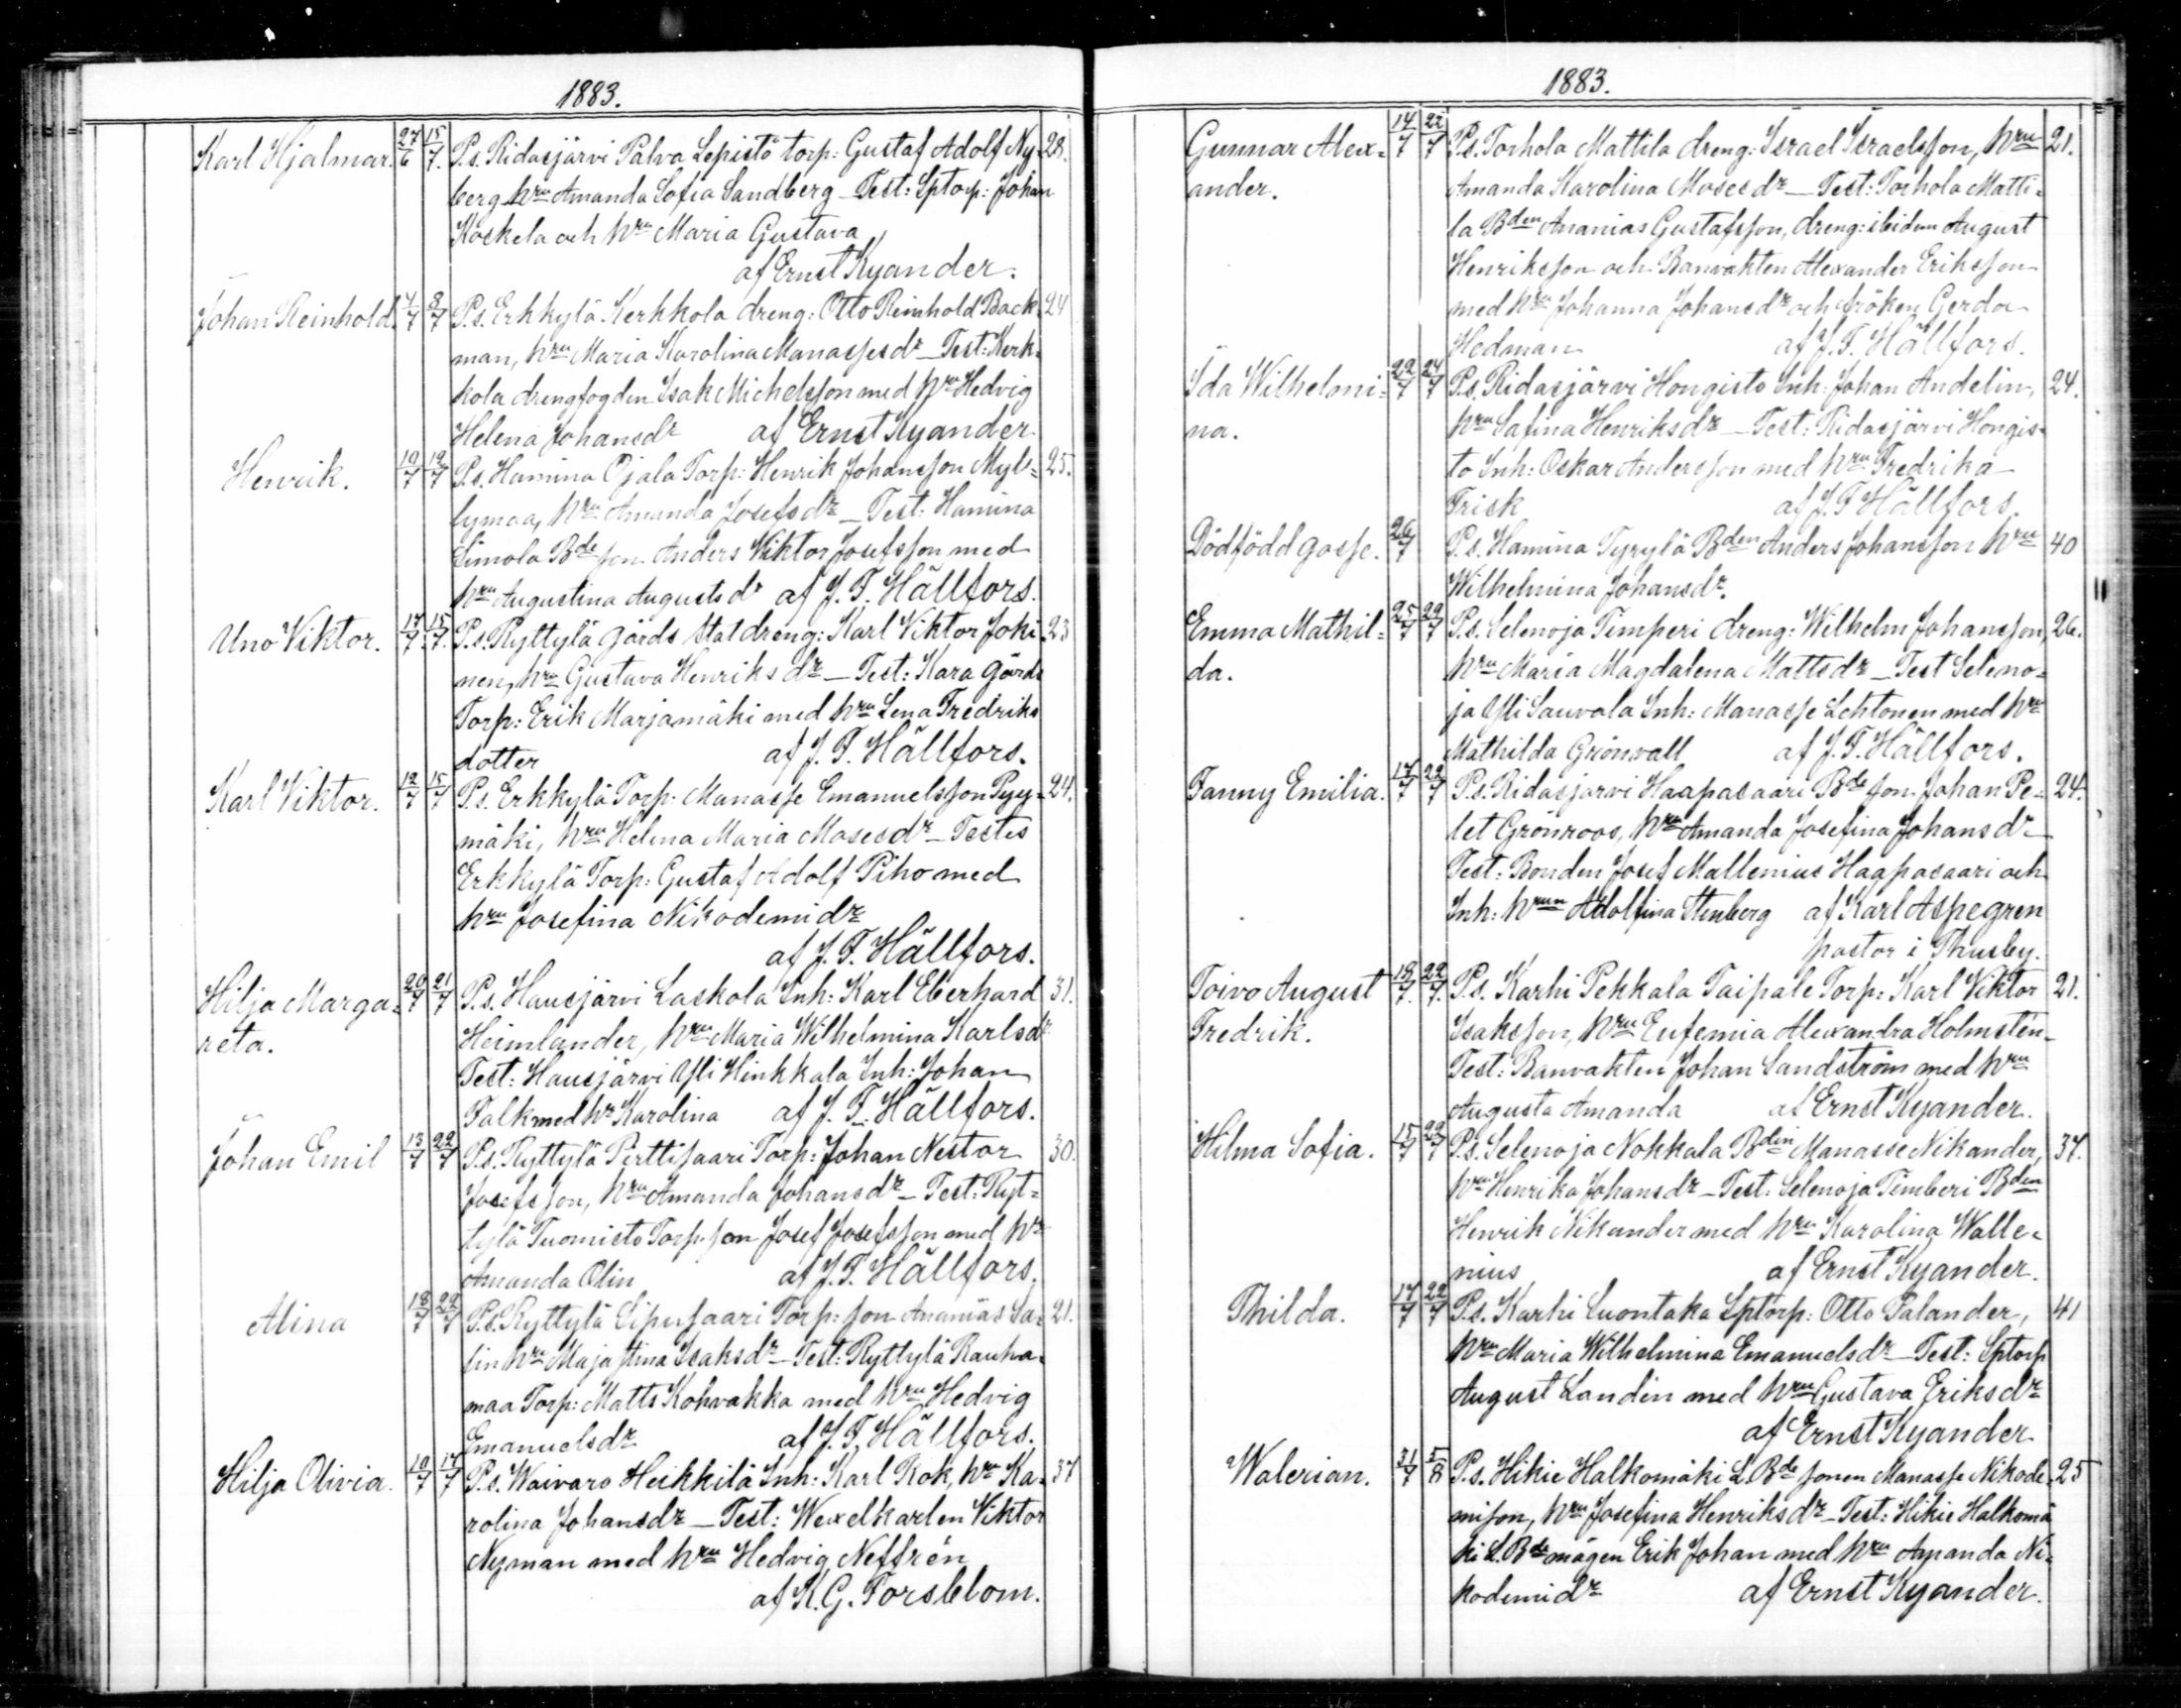 1883.
Karl Hjalmar. 27/6 15/7. P.s. Ridasjärvi Palva Lepistö torp: Gustaf Adolf Ny- 28.
berg hru Amanda Sofia Sandberg – Test: Sptorp: Johan
Koskela och hru Maria Gustava
af Ernst Kyander.
Johan Reinhold. 4/7 8/7 P.s. Erkkylä Kerkkola dreng: Otto Reinhold Back- 24
man, hru Maria Karolina Manassesdr – Test: Kerk-
kola drengfogden Isak Michelsson med hru Hedvig
Helena Johansdr af Ernst Kyander
Henrik. 10/7 12/7 P.s. Hamina Ojala Torp: Henrik Johansson Myl- 25.
lymaa, hru Amanda Josefsdr – Test: Hamina
Simola Bde son Anders Viktor Josefsson med
hru Augustina Augustsdr af J. F. Hällfors.
Uno Viktor. 14/7. 15/7. P.s. Ryttylä gårds statdreng: Karl Viktor Joki- 23
nen, hru Gustava Henriksdr – Test: Kara gårds
Torp: Erik Marjamäki med hru Lena Fredriks
dotter af J. F. Hällfors.
Karl Viktor. 12/7 15/7 P.s. Erkkylä Torp: Manasse Emanuelsson Pyy- 24.
mäki, hru Helena Maria Mosesdr – Testes
Erkkylä Torp: Gustaf Adolf Piho med
hru Josefina Nikodemidr
af J. F. Hällfors.
Hilja Marga- 20/7 21/7 P.s. Hausjärvi Laskola Inh: Karl Eberhard 31.
reta. Heimlander, hru Maria Wilhelmina Karlsdr
Test: Hausjärvi Yli Hinkkala Inh: Johan
Falk med hr Karolina af J. F. Hällfors.
Johan Emil 13/7 22/7 P.s. Ryttylä Pirttisaari Torp: Johan Nestor 30.
Josefsson, hru Amanda Johansdr – Test: Ryt-
tylä Tuomisto Torp. son Josef Josefsson med hr
Amanda Olin af J. F. Hällfors.
Alina 18/7 22/7 P.s. Ryttylä Sipusaari Torp: son Ananias Sa- 21.
lin hru Maja Stina Isaksdr – Test: Ryttylä Rauha-
maa Torp: Matts Kohvakka med hru Hedvig
Emanuelsdr af J. F. Hällfors.
Hilja Olivia. 10/7 17/7 P.s. Waivaro Heikkilä Inh: Karl Rok, hru Ka- 37
rolina Johansdr – Test: Wexelkarlen Viktor
Nyman med hru Hedvig Neffrén
af K. G. Forsblom.
1883.
Gunnar Alex- 14/7 22/7 P.s. Torhola Mattila dreng: Israel Israelsson, hru 21.
ander. Amanda Karolina Mosesdr – Test: Torhola Matti-
la Bden Ananias Gustafsson, dreng: ibidem August
Henriksson och Banvakten Alexander Eriksson
med hru Johanna Johansdr och fröken Gerda
Hedman af J. F. Hällfors.
Ida Wilhelmi- 22/7 24/7 P.s. Ridasjärvi Hongisto Inh: Johan Andelin, 24.
na. hru Safina Henriksdr – Test: Ridasjärvi Hongis-
to Inh: Oskar Andersson med hru Fredrika
Frisk af J. F. Hällfors.
Dödfödd gosse. 26/7 P.s. Hamina Tyrylä Bden Anders Johansson hru 40
Wilhelmina Johansdr.
Emma Mathil- 25/7 29/7 P.s. Selenoja Timperi dreng: Wilhelm Johansson, 26.
da. hru Maria Magdalena Mattsdr – Test Seleno-
ja Yli Sauvala Inh: Manasse Lehtonen med hru
Mathilda Grönvall af J. F. Hällfors.
Fanny Emilia. 17/7 22/7 P.s. Ridasjärvi Haapasaari Bde son Johan Pe- 24.
let Grönroos, hru Amanda Josefina Johansdr
Test: Bonden Josef Mallenius Haapasaari och
Inh: hrun Adolfina Stenberg af Karl Aspegren
pastor i Thusby.
Toivo August 18/7. 22/7. P.s. Karhi Pekkala Taipale Torp: Karl Viktor 21.
Fredrik. Isaksson, hru Eufemia Alexandra Holmstén –
Test: Banvakten Johan Sandström med hru
Augusta Amanda af Ernst Kyander.
Hilma Sofia. 15/7 22/7 P.s. Selenoja Nokkala Bden Manasse Nikander, 37.
hru Henrika Johansdr – Test: Selenoja Timberi Bden
Henrik Nikander med hru Karolina Walle-
nius af Ernst Kyander.
Thilda. 17/7 22/7 P.s. Karhi Luontaka Sptorp: Otto Palander, 41
hru Maria Wilhelmina Emanuelsdr – Test: Sptorp
August Landén med hru Gustava Eriksdr
af Ernst Kyander
Walerian. 31/7 5/8 P.s. Hikie Halkomäki L. Bde sonen Manasse Nikode- 25
mison, hru Josefina Henriksdr – Test: Hikie Halkomä
ki L. Bde mågen Erik Johan med hru Amanda Ni-
kodemidr af Ernst Kyander.